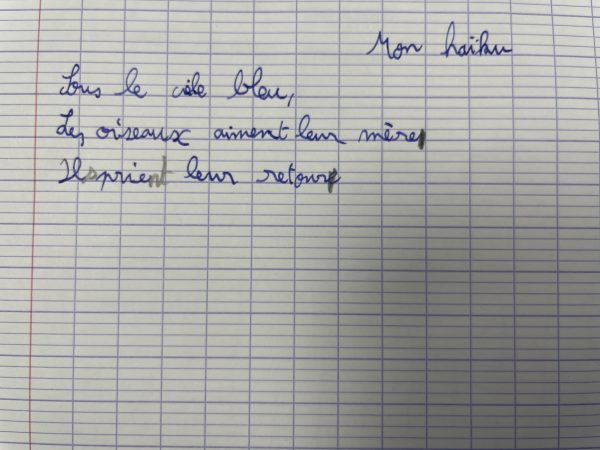 Mon haïku
Sous le ciele bleu,
Les oiseaux aiment leur mère
Ils prient leur retour